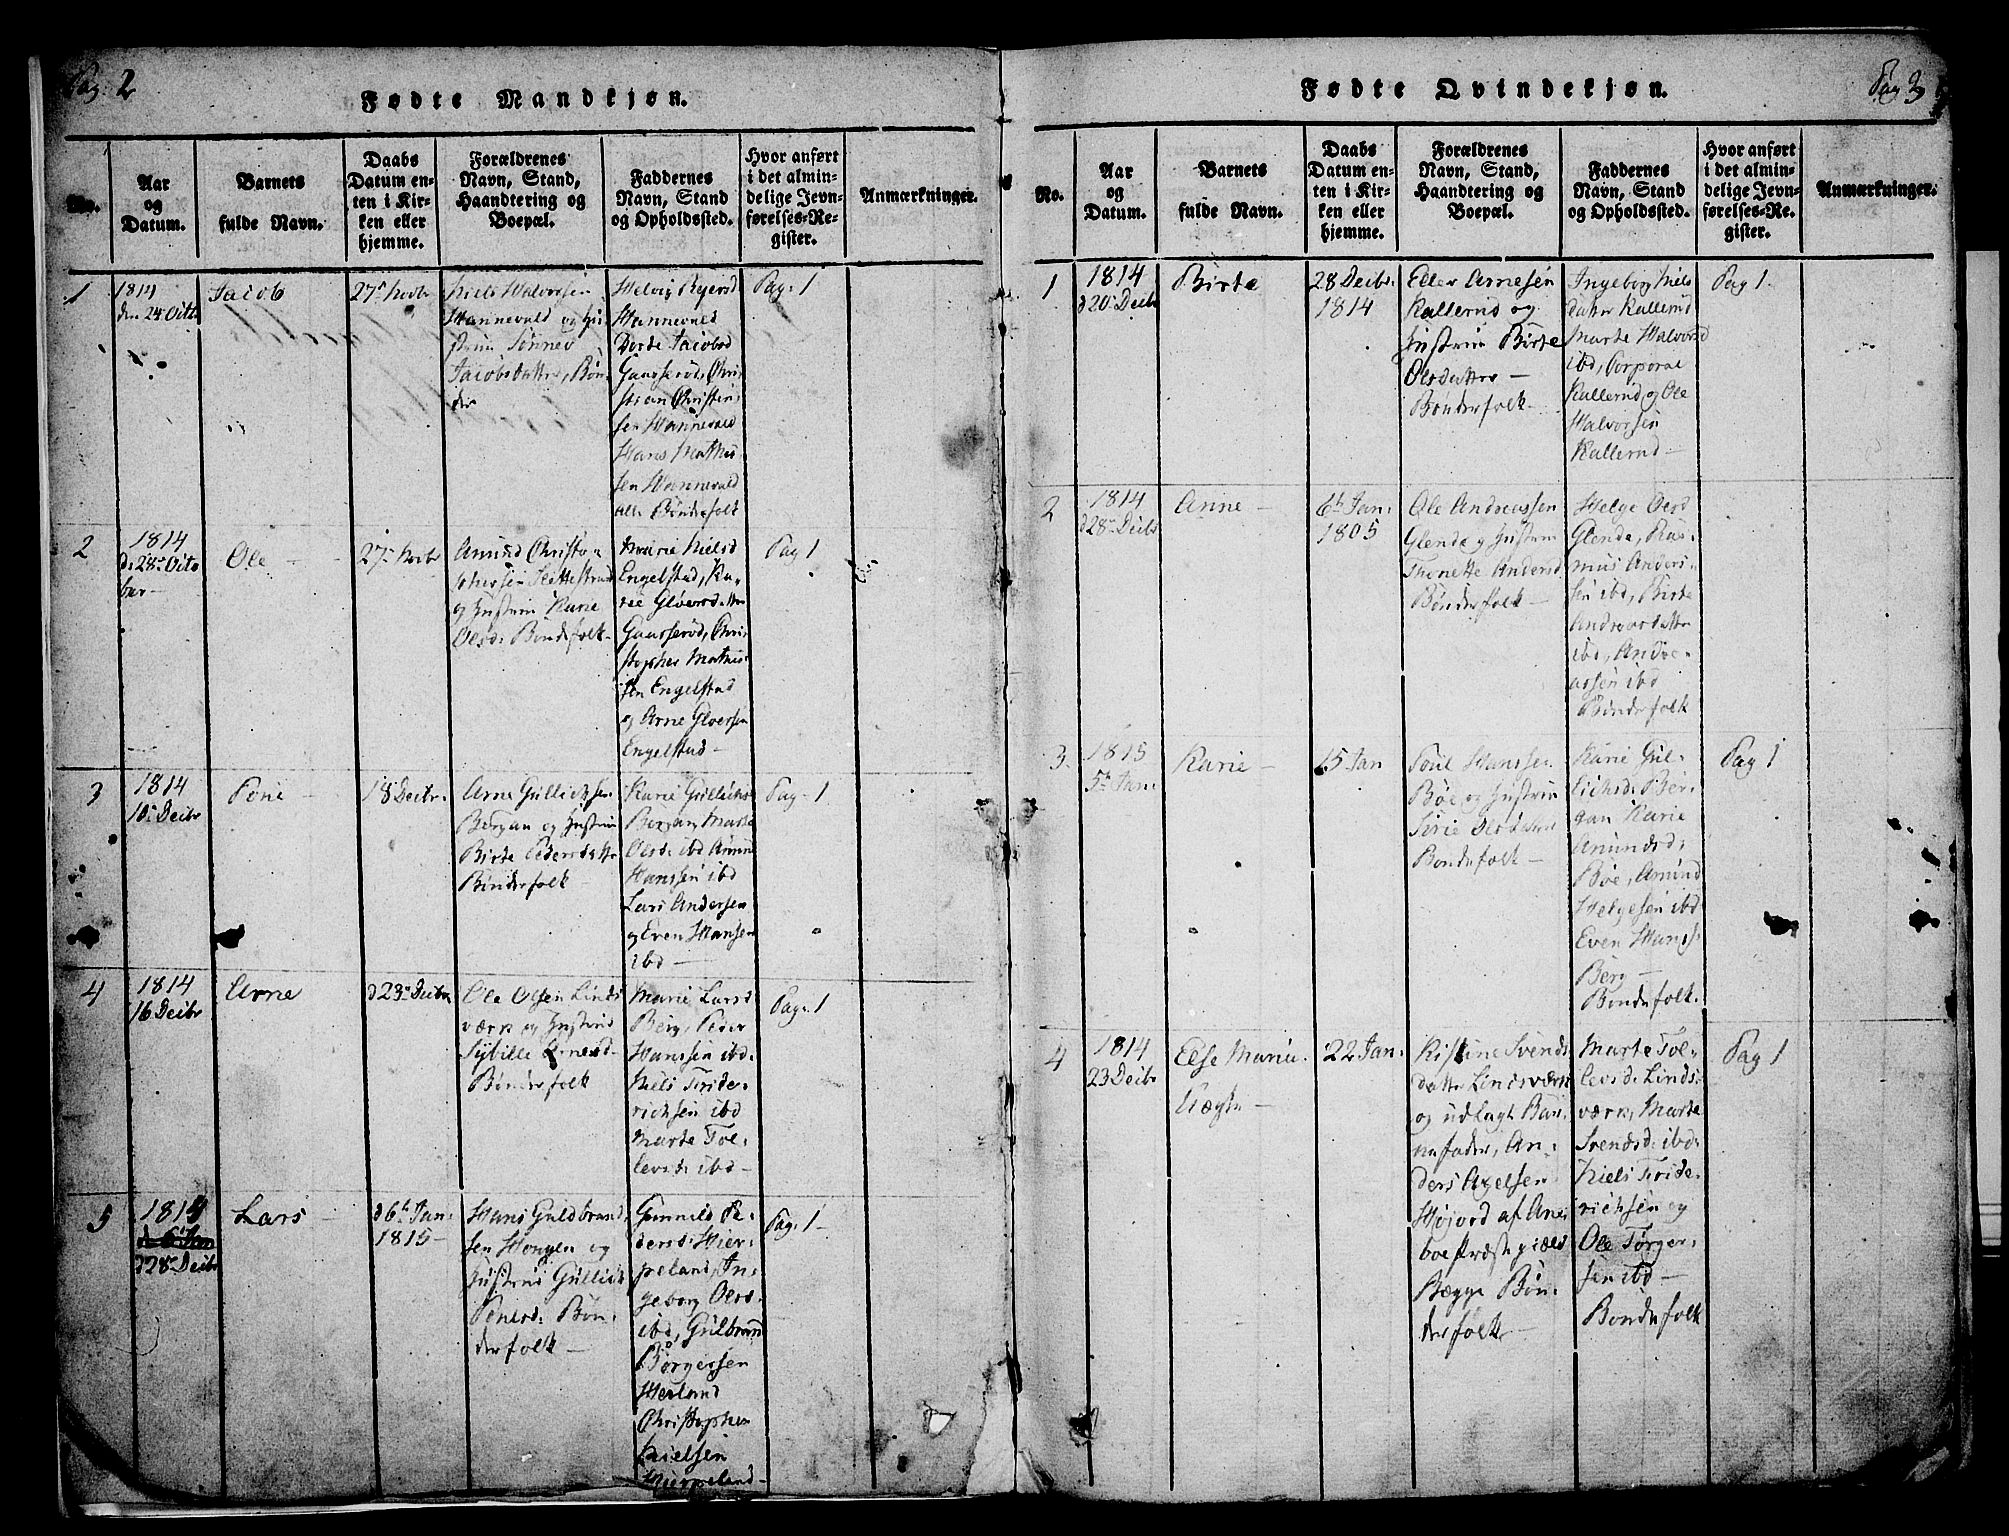 Pag. 2
Fødte Mandkjøn.
No.
Aar
og
Datum.
Barnets
fulde Navn.
Daabs
Datum en-
ten i Kir-
ken eller
hjemme.
Forældrenes
Navn, Stand,
Haandtering og
Boepæl.
Faddernes
Navn, Stand
og Opholdssted.
Hvor anført
i det almin-
delige Jevn-
førelses-Re-
gister.
Anmærkninger.
1
1814
Jacob
Niels Halvorsen
Hannevald og Hu-
Jacobsdatter, Bøn-
der
Hannevald
Dorte Jacobsd
Gaasserød, Chri-
stian Christen-
sen Hannevald
Hans Mathis-
sen Hannevald
alle Bønderfolk
Pag. 1
2
1814
d. 28de Octo
ber
Ole
27de Novbr
Amund Christo-
phersen Slettestrand
og Hustrue Karie
Olsd. Bøndefolk
Marie Nielsd
Engelstad, Ka-
rie Gloersdatter
Gaasserød, Chri-
stopher Mathis-
sen Engelstad
og Arne Gloersen
Engelstad
Pag 1
3
1814
10de Decbr
Pone
18 Decbr.
Arne Gullichsen
Bergan og Hustrue
Birte Pedersdatter
Bønderfolk
Karie Gullichs
Bergan, Marte
Olsd. ibd Amun
Hanssen ibd
Lars Andersen
og Even Hansen
ibd
Pag. 1
4
1814
16 Decbr
Arne
d 23de Decbr
Ole Olsen Linds
værk og Hustrue
Sybille Arnesd
Bønderfolk
Marie Larsd
Berg, Peder
Hanssen ibd.
Niels Fride-
richsen ibd
Marte Tol-
levsd. ibd
Pag. 1
5
1814
d 28de Decbr
Lars
d 6te Jan.
1815
Hans Guldbrand
sen Hougen og
Hustrue Gullich
Ponersd. Bøn-
derfolk
Gunnild Pe-
dersd. Hier-
peland, In-
geborg Olsd.
ibd, Gulbran
Børgersen
Herland
Christopher
Nielsen
Hierpeland
Pag. 1
Pag 3
Fødte Qvindekjøn.
No.
Aar
og
Datum.
Barnets
fulde Navn.
Daabs
Datum en-
ten i Kir-
ken eller
hjemme.
Forældrenes
Navn, Stand,
Haandtering og
Boepæl.
Faddernes
Navn, Stand
og Opholdssted.
Hvor anført
i det almin-
delige Jevn-
førelses-Re-
gister.
Anmærkninger.
1
1814
d 20de Decbr
Birte
28 Decbr.
1814
Eller Arnesen
Kallerud og
Hustrue Birte
Olsdatter
Bønderfolk
Ingeborg Niels
datter Kallerud
Marte Halvorsd
ibd, Corporal
Kallerud og Ole
Halvorsen
Kallerud
Pag 1.
2
1814
d 28de Decbr
Anne
6te Jan.
1805
Ole Andreassen
Glende og Hustrue
Thonette Andersd
Bønderfolk
Helge Olsd
Glende, Ras-
mus Anders-
sen ibd, Birte
Andreasdatter
ibd, Andre-
assen ibd
Bønderfolk
3.
1815
5te Jan.
Karie
15 Jan
Poul Hanssen
Bøe og Hustrue
Sirie Olsdatter
Bøndefolk
Karie Gul-
lichsd. Ber-
gan Karie
Amundsd.
Bøe, Amund
Helgesen ibd
Even Hans-
Berg
Bøndefolk.
Pag 1
4
1814
23 Decbr
Else Marie
Uægte
22 Jan.
Kistine Svends
datter Lindsværk
og udlagt Bar-
nefader, An-
ders Axelsen
Højord af Ane-
boe Præstegield
Bægge Bøn-
derfolk
Marte Tol-
levsd. Linds-
værk, Marte
Svendsd. ibd.
Niels Fride-
richsen og
Ole Torger-
sen ibd
Bøndefolk
Pag 1